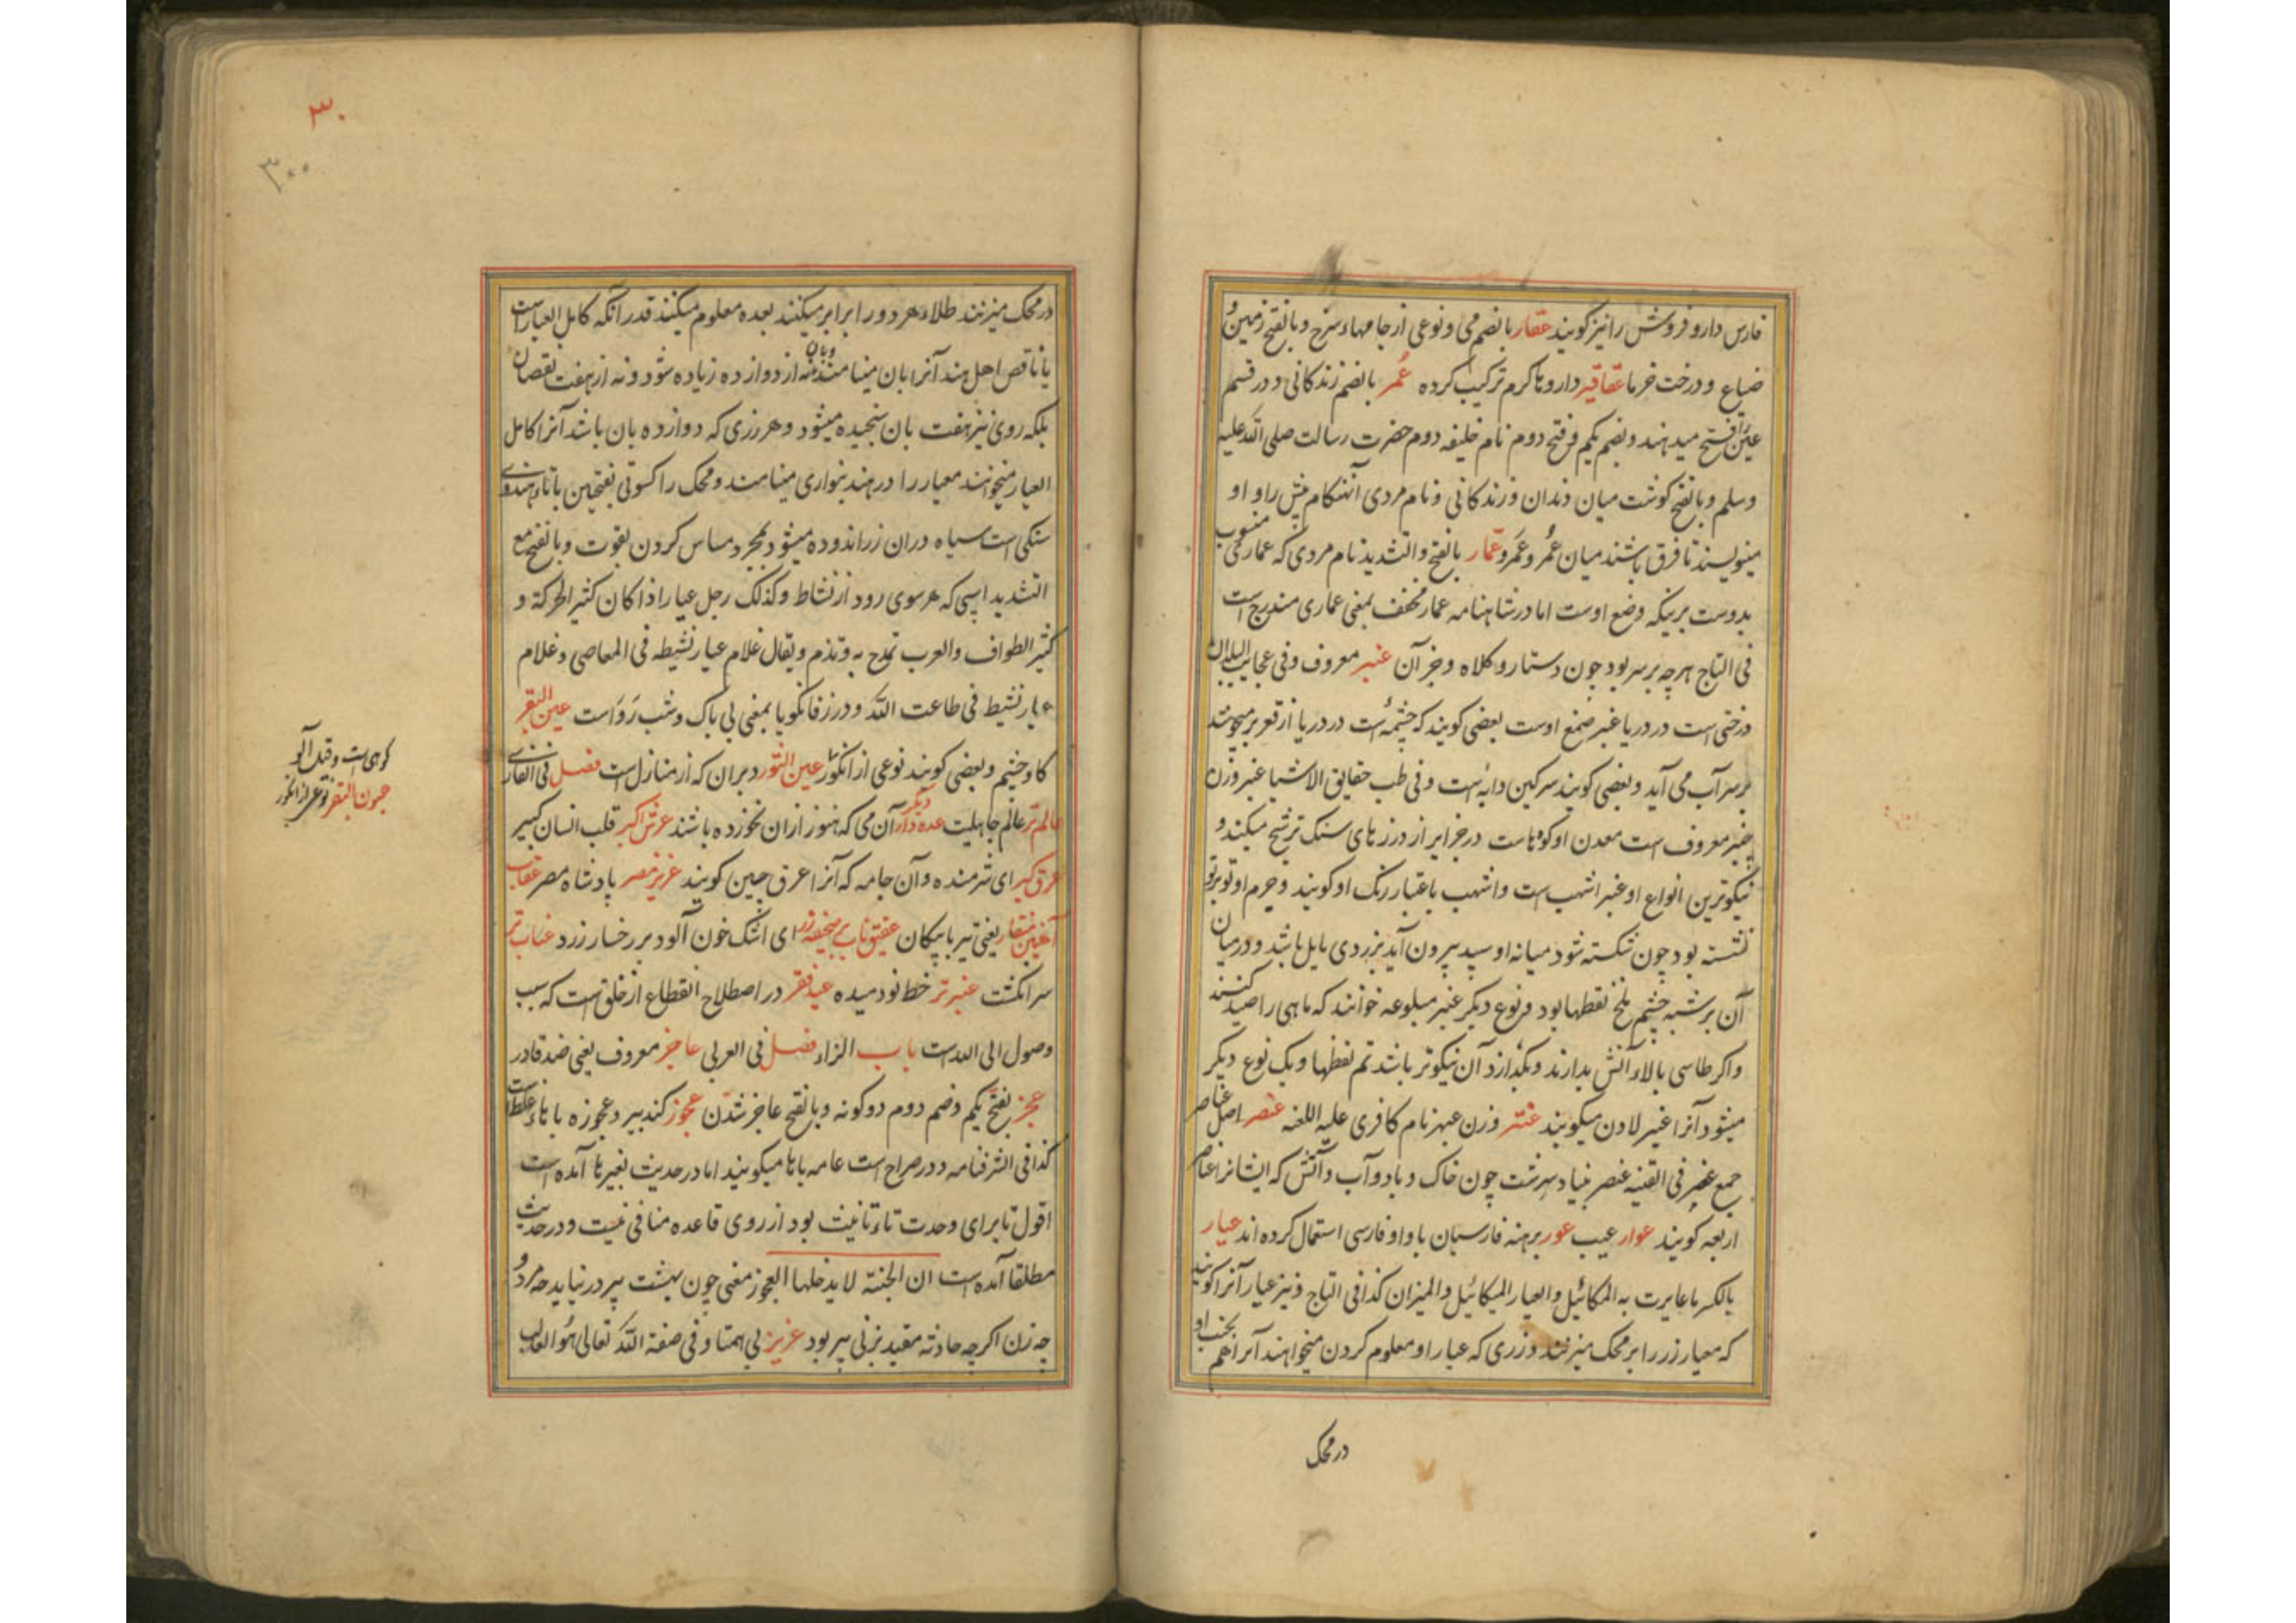 فارس دارو فروش را نیز گویند عقار بالضم می و نوعی از جامهاء سرخ و بالفتح زمین و
ضیاع و درخت خرما عقاقیر داروها کرم ترکیب کرده عمر بالضم زندکانی و در قسم
عین را فتح میدهند و بضم یکم و فتح دوم نام خلیفه دوم حضرت رسالت صلی الله علیه
وسلم و بالفتح کوشت میان دندان و زندکانی و نام مردی آنهنکام پیش را و او
مینویسند تا فرق باشند میان عمر و عمرو عمار بالفتح و التشدید نام مردی که عماری منسوب
بدوست بریںکه وضع اوست اما در شاهنامه عمار مخفف بمعنی عماری مندرج است
فی التاج هرچه بر سر بود چون دستار و کلاه و جز آن عنبر معروف و فی عجایب البلدان
درختی است در دریا عنبر صمغ اوست بعضی کویند که چشمه است در دریا از قعر بر میجوشد
بر سر آب می آید و بعضی کویند سرکین دابه است و فی طب حقایق الاشیا عنبر وزن
معروف است معدن او کوهاست در جزایر از درزهای سنک ترشح میکند و
نیکوترین انواع او عنبر اشهب است و اشهب باعتبار رنک او کویند و جرم او تو بر تو
نشسته بود چون شکسته شود میانه او سپید بیرون آید بزردی مایل باشد و در میان
آن بر شبه چشم ملخ نقطها بود و نوع دیکر عنبر مبلوعه خوانند که ماهی را صید کنند
و اکر طاسی بالاء آتش بدارند و بکذارد آن نیکوتر باشد تم لفظها و یک نوع دیکر
میشود آنرا عنبر لادن میکویند عنتر وزن عبهر نام کافری علیه اللعنه عنصر اصل عناصر
جمع عنصر فی القنیه عنصر بنیاد سرشت چون خاک و باد و آب و آتش که ایشانرا عناصر
اربعه کویند عوار عیب عور برهنه فارسیان با واو فارسی استعمال کرده اند عیار
بالکسر ما عایرت به المکائیل و العیار المیکائیل و المیزان کذا فی التاج و نیز عیار آنرا کویند
که معیار زر را بر محک میزنند و زری که عیار او معلوم کردن میخواهند آنرا هم بجنب او
در محک
۳۰
۳۰۰
در محک میزنند طلاء هر دو را برابر میکنند بعده معلوم میکنند قدر آنکه کامل العیار است
یا ناقص اهل هند آنرا بان مینامند و بان نه از دوازده زیاده شود و نه از هفت نقصان
بلکه روی نیز هفت بان سنجیده میشود و هر زری که دوازده بان باشد آنرا کامل
العیار میخوانند معیار را در هند بنواری مینامند و محک را کسوتی بفتحین با تاء هندوی
سنکی است سیاه دران زر اندوده میشود بمجرد مساس کردن بقوت و بالفتح مع
التشدید اسپی که هر سوی رود از نشاط و کذلک رجل عیار اذا کان کثیر الحرکة و
کثیر الطواف و العرب تمدح به و تذم و یقال غلام عیار نشیطه فی المعاصی و غلام
عیار نشیط فی طاعت الله و در زفانکویا بمعنی بی باک و شب رو است عین البقر
کاو چشم و بعضی کویند نوعی از انکور عین الثور دبران که از منازل است فصل فی الفارسی
عالم تر عالم جاهلیت عده دار دیکر آن می که هنوز ازان نخورده باشند عرش اکبر قلب انسان کبیر
عرق کیر ای شرمنده و آن جامه که آنرا عرق چین کویند عزیز مصر پادشاه مصر عقاب
آهنین منقار یعنی تیر با پیکان عقیق ناب بر صحیفه زر ای اشک خون آلود بر رخسار زرد عناب تر
سر انکشت عنبر تر خط نو دمیده عید فقر در اصطلاح انقطاع از خلق است که سبب
وصول الی الله است باب الزاء فصل فی العربی عاجز معروف یعنی ضد قادر
عجز بفتح یکم و ضم دوم دو کونه و بالفتح عاجز شدن عجوز کنده پیر و عجوزه با تاء غلط است
کذا فی الشرفنامه و در صراح است عامه با تا میکویند اما در حدیث بغیر تا آمده است
اقول تا برای وحدت تاء تانیث بود از روی قاعده منافی نیست و در حدیث
مطلقا آمده است ان الجنة لا یدخلها العجوز معنی چون بهشت پیر در نیاید چه مرد و
چه زن اکرچه حادثه مقید بزنی پیر بود عزیز بی همتا و فی صفة الله تعالی هو الغالب
کوهی است و قیل آلو
عیون البقر نوعی از انکور